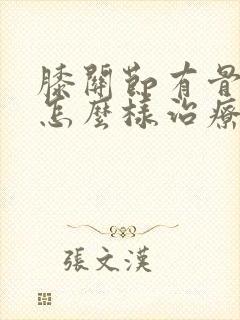 膝關節有骨
怎麼樣治療
張文漢